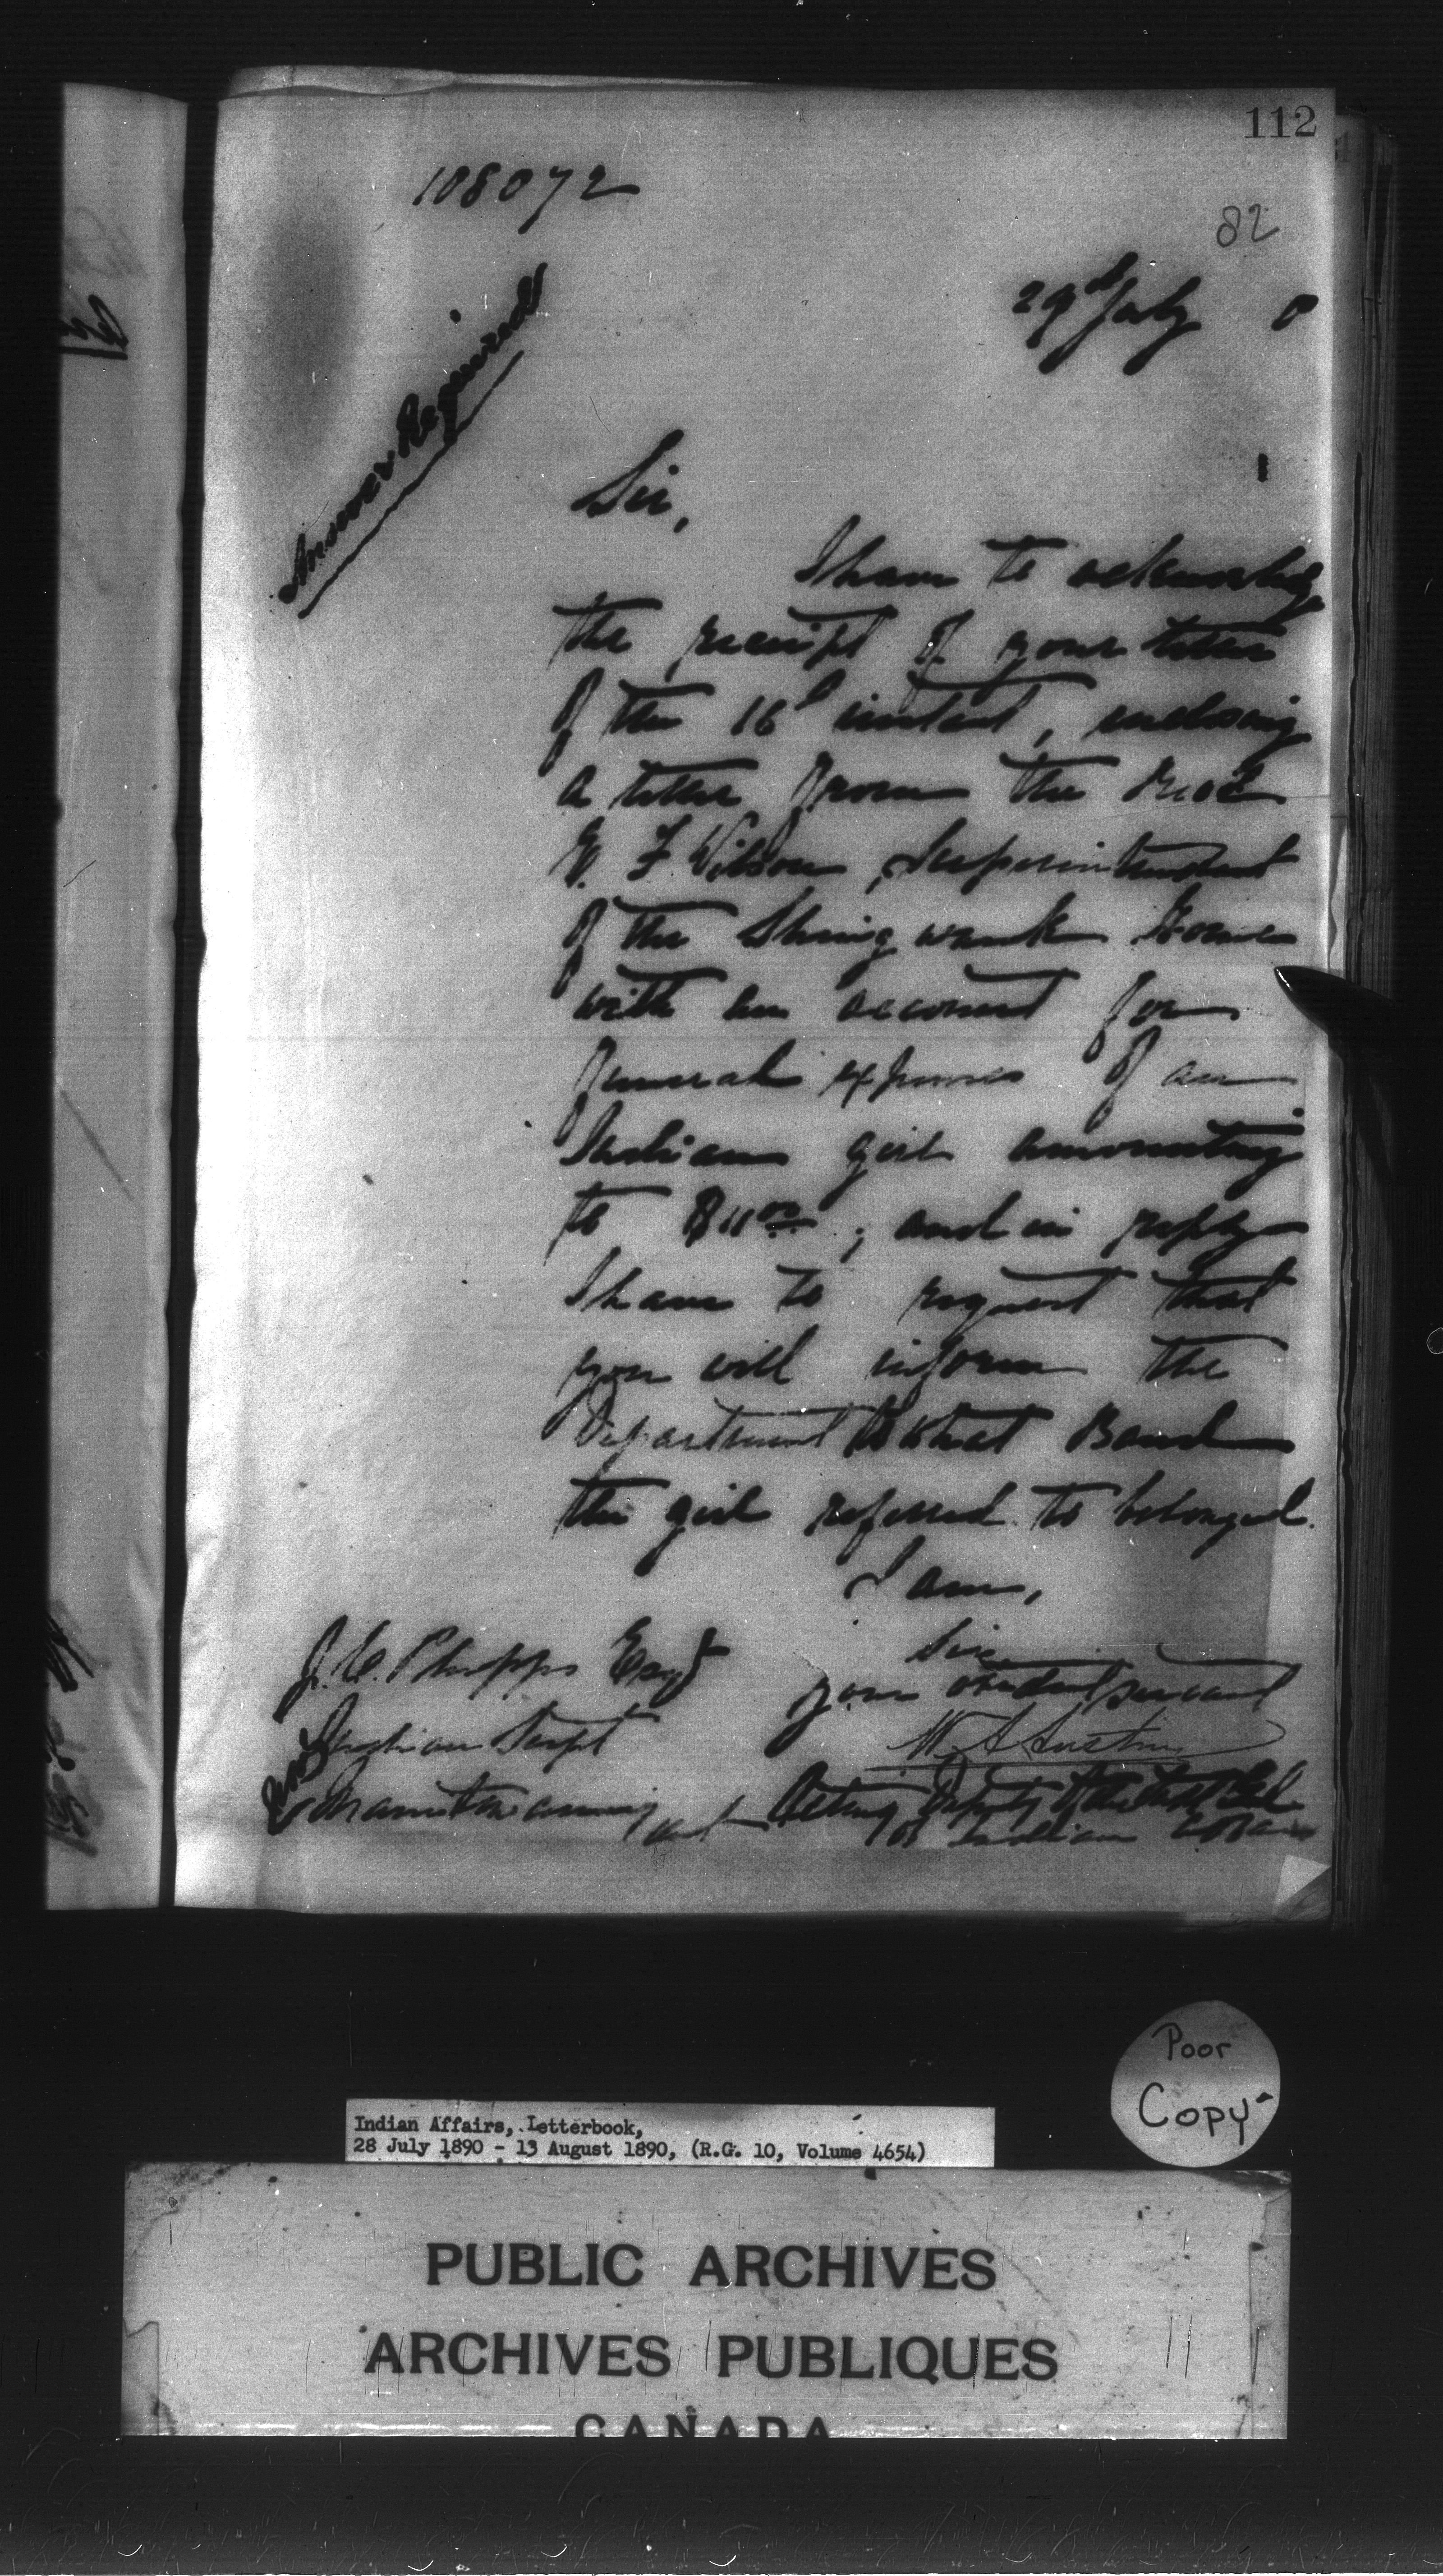 112
108072
82
29th July 0
Answer Required
Sir,
I have to acknowledge
the receipt of your letter
of the 16th instant, enclosing
a letter from the Revd
E. F Wilson, Superintendent
of the Shingwauk Home
with an account for
funeral expenses of an
Indian girl amounting
to $11.00; and in reply
I have to request that
you will inform the
Department to what Band
the girl referred to belonged.
I am,
Sir
your obedient servant
W. A Austin
Acting Deputy of the Supt Genl
of Indian Affairs
J. C. Phipps Esqr
Indian Supt
Manitowaning
Ont
Poor
Copy
Indian Affairs, Letterbook,
28 July 1890 - 13 August 1890, (R.G. 10, Volume 4654)
PUBLIC ARCHIVES
ARCHIVES PUBLIQUES
CANADA